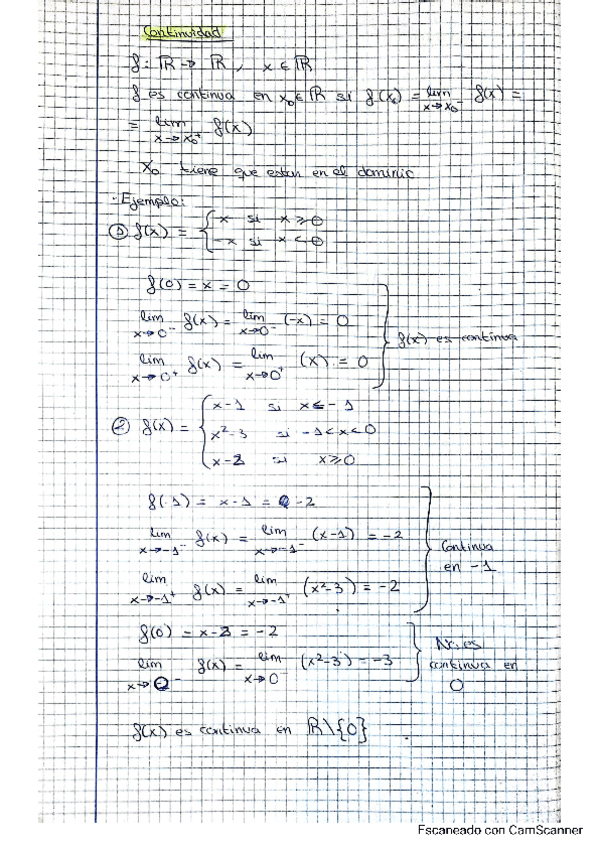 Continuidad
f: ℝ → ℝ, x ∈ ℝ
f es continua en x₀ ∈ ℝ si f(x₀) = lim x→x₀⁻ f(x) =
= lim x→x₀⁺ f(x)
x₀ tiene que estar en el dominio
· Ejemplo:
① f(x) = { x si x ≥ 0
-x si x < 0
f(0) = x = 0
lim x→0⁻ f(x) = lim x→0⁻ (-x) = 0
f(x) es continua
lim x→0⁺ f(x) = lim x→0⁺ (x) = 0
② f(x) = { x-1 si x ≤ -1
x²-3 si -1 < x < 0
x-2 si x ≥ 0
f(-1) = x-1 = -2
lim x→-1⁻ f(x) = lim x→-1⁻ (x-1) = -2
Continua en -1
lim x→-1⁺ f(x) = lim x→-1⁺ (x²-3) = -2
f(0) = x-2 = -2
lim x→0⁻ f(x) = lim x→0 (x²-3) = -3
No es continua en 0
f(x) es continua en ℝ\{0}
Escaneado con CamScanner